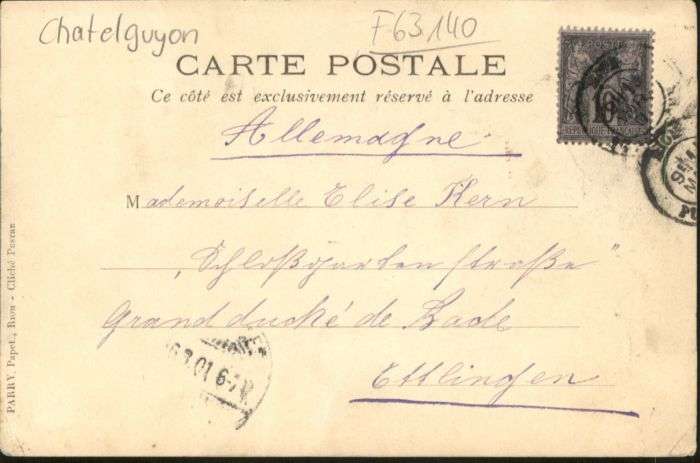 Chatelguyon
F63140
CARTE POSTALE
Ce côté est exclusivement réservé à l'adresse
Allemagne
Mademoiselle Elise Kern
„Schloßgartenstraße"
Grand duché de Bade
Ettlingen
PARRY, Papet., RIOM - Cliché
10
01 6-7